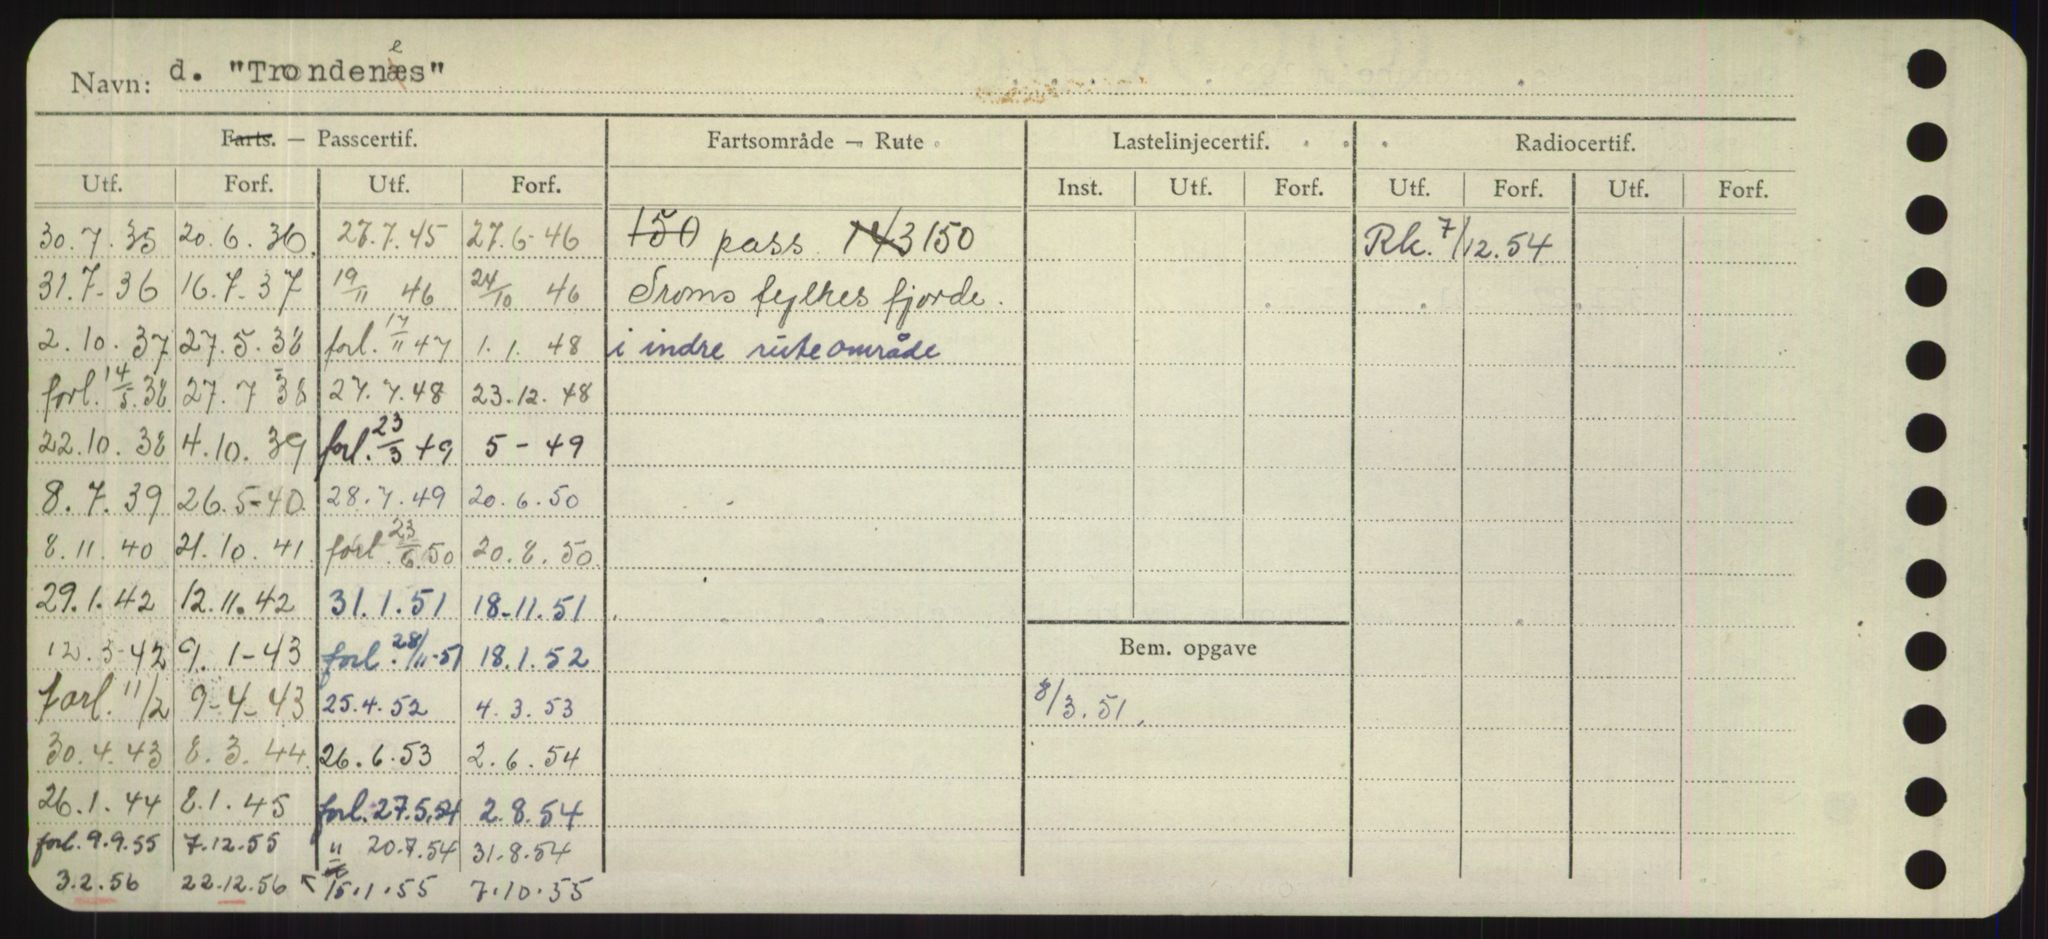 Navn: d. "Trondenes"
Farts. — Passcertif. Fartsområde — Rute Lastelinjecertif. Radiocertif.
Utf. Forf. Utf. Forf. Inst. Utf. Forf. Utf. Forf. Utf. Forf.
30.7.35 20.6.36. 27.7.45 27.6-46 150 pass 143 150 Rk. 7/12.54
31.7-36 16.7-37 19/11 46 24/10 46 Troms fylkes fjorde.
2.10.37 27.5.38 forl. 17/11 47 1.1.48 i indre ruteområde
forl. 14/5.38 27.7 38 27.7.48 23.12.48
22.10.38 4.10.39 forl. 23/3 49 5-49
8.7.39 26.5-40 28.7.49 20.6.50
8.11.40 21.10.41 forl 23/6.50 20.8.50
29.1.42 12.11.42 31.1.51 18-11.51
12.3-42 9.1-43 forl. 28/11-51 18.1.52 Bem. opgave
forl. 11/2 9-4-43 25.4.52 4.3.53 8/3.51.
30.4.43 8.3.44 26.6.53 2.6.54
26.1.44 8.1.45 forl. 27.5.54 2.8.54
forl. 9.9.55 7.12.55 " 20.7.54 31.8.54
3.2.56 22.12.56 15.1.55 7.10.55